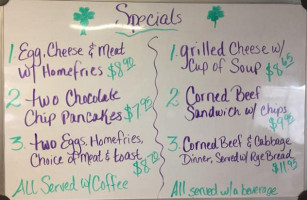 Specials
1. Egg, Cheese & Meat
w/ Homefries $8.90
2 two Chocolate
Chip Pancakes $7.95
3. two Eggs, Homefries,
Choice of Meat & toast $8.70
All Served w/Coffee
1. grilled Cheese w/
Cup of Soup $8.65
2. Corned Beef
Sandwich w/ Chips
$9.95
3. Corned Beef & Cabbage
Dinner, Served w/ Rye Bread
$11.95
All served w/a beverage